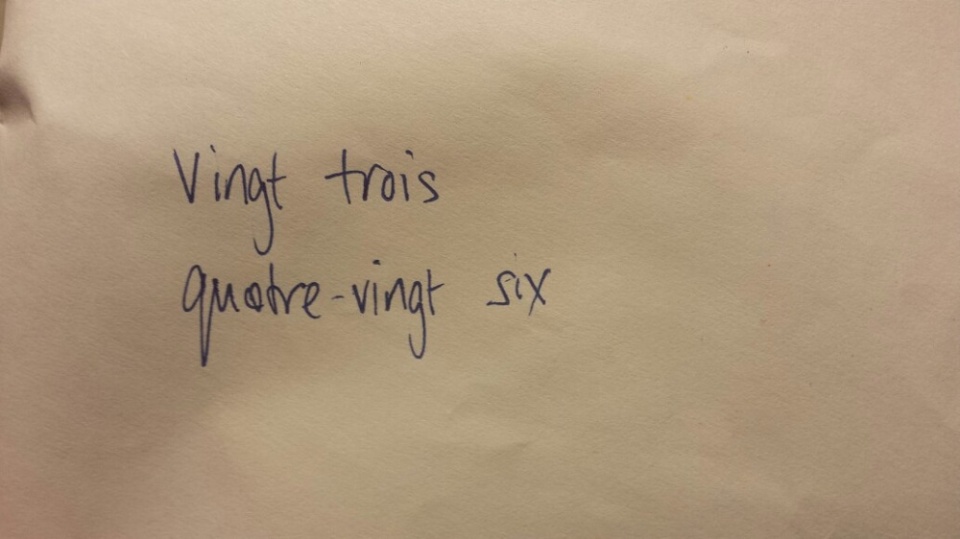 Vingt trois
quatre-vingt six